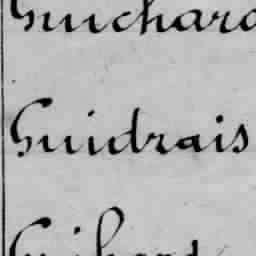 Guichard
Guidrais